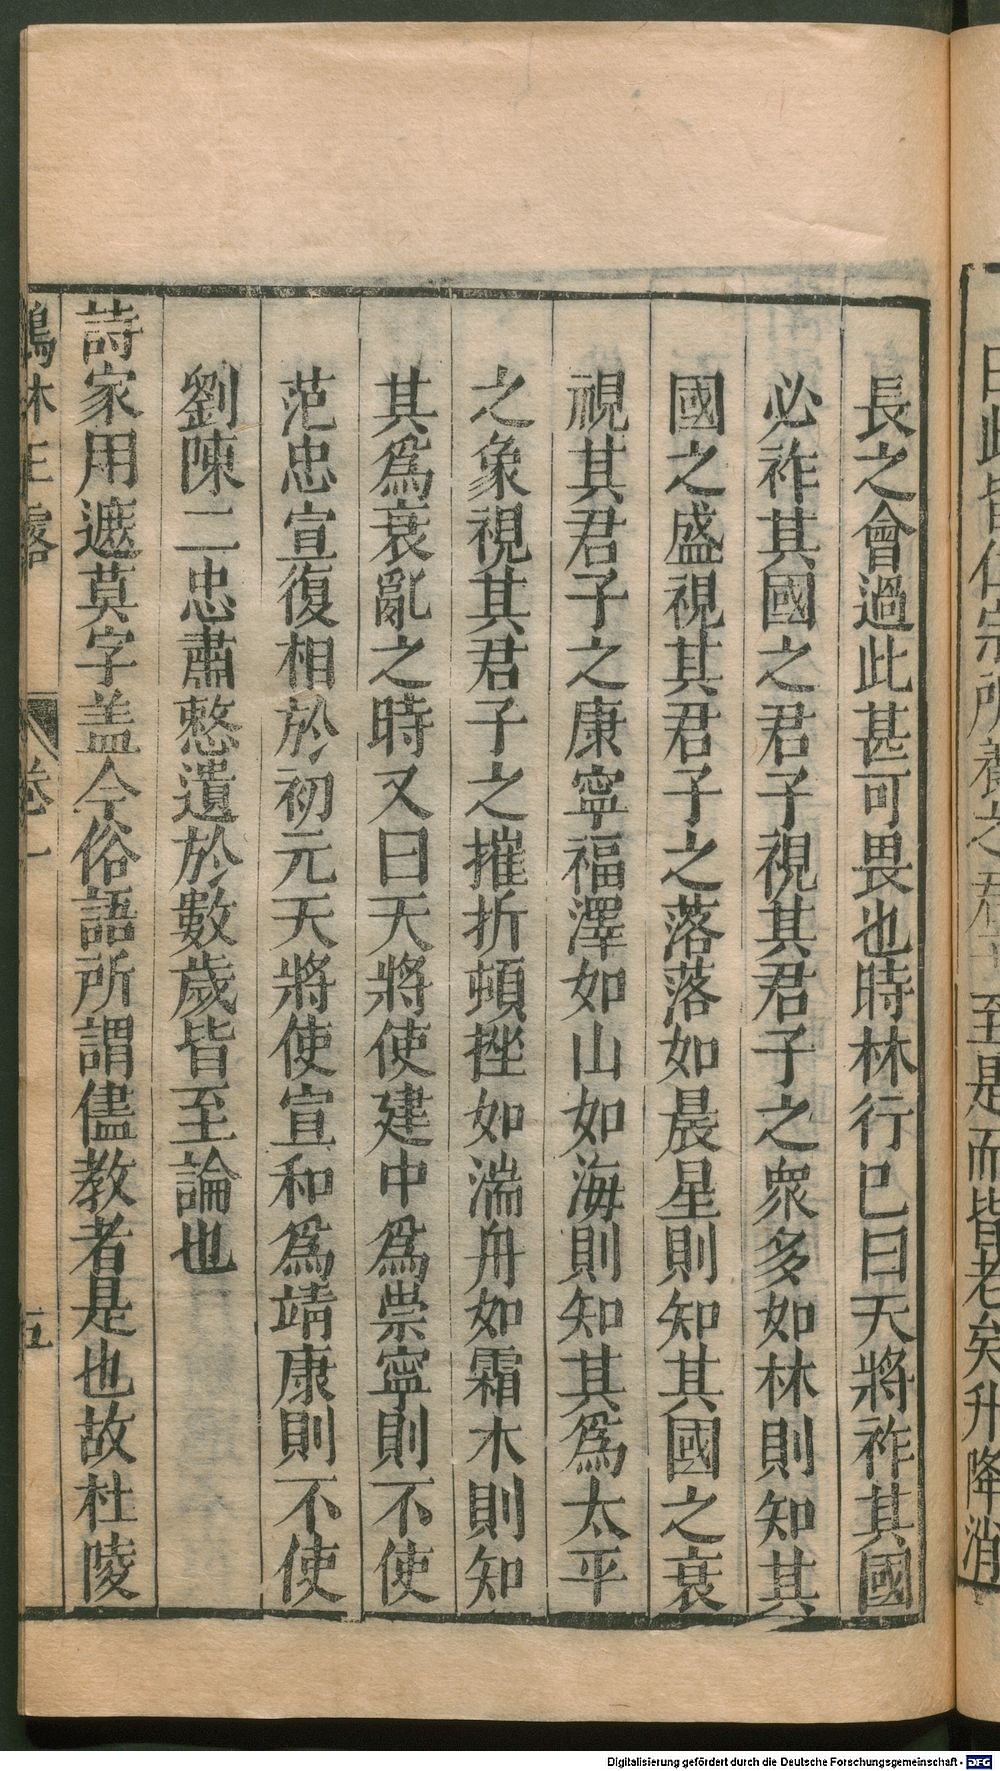 至是而皆老矣升降消
長之會過此甚可畏也時林行已曰天將祚其國
必祚其國之君子視其君子之衆多如林則知其
國之盛視其君子之落落如晨星則知其國之衰
視其君子之康寧福澤如山如海則知其爲太平
之象視其君子之摧折頓挫如湍舟如霜木則知
其爲衰亂之時又曰天將使建中爲崇寧則不使
范忠宣復相於初元天將使宣和爲靖康則不使
劉陳二忠肅憗遺於數歲皆至論也
詩家用遮莫字盖今俗語所謂儘教者是也故杜陵
鶴林玉露 卷一 五
Digitalisierung gefördert durch die Deutsche Forschungsgemeinschaft - DFG